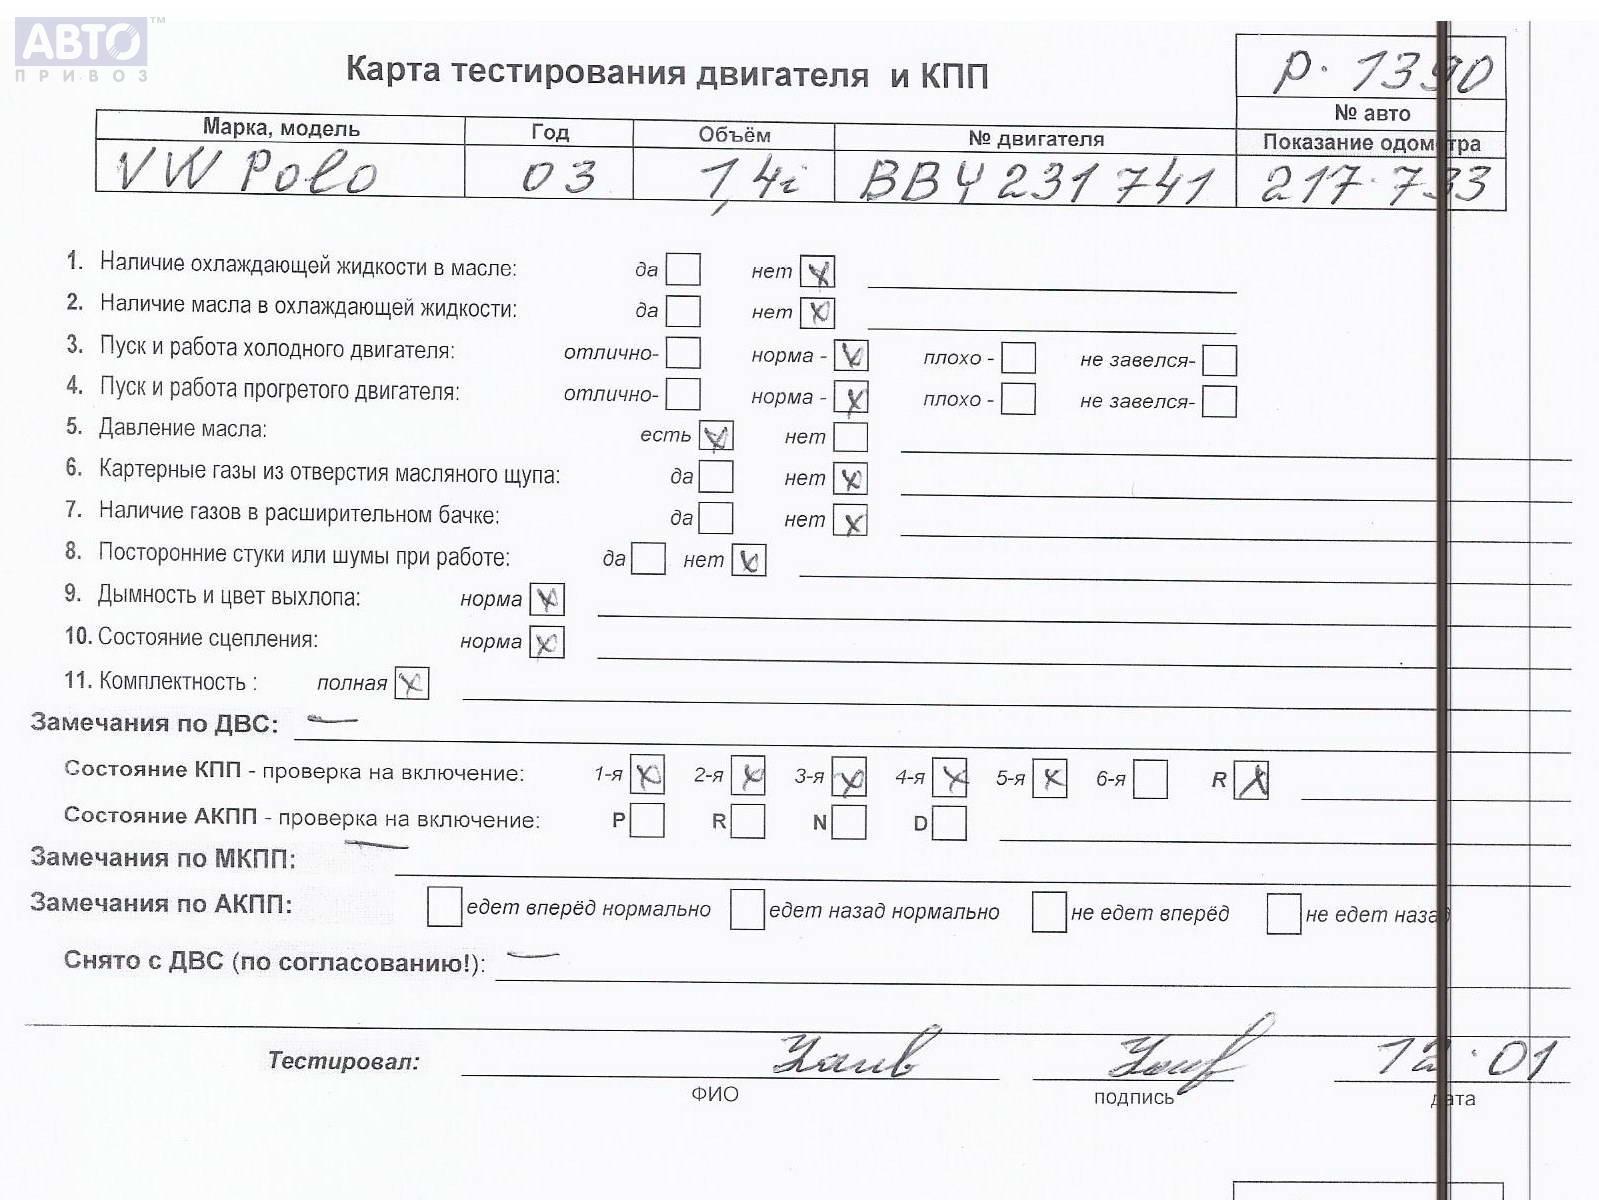 АВТО™
ПРИВОЗ
Карта тестирования двигателя и КПП
р. 1390
№ авто
Марка, модель Год Объём № двигателя Показание одометра
VW Polo 03 1,4i BBY 231 741 217.733
1. Наличие охлаждающей жидкости в масле: да нет x
2. Наличие масла в охлаждающей жидкости: да нет x
3. Пуск и работа холодного двигателя: отлично- норма - x плохо - не завелся-
4. Пуск и работа прогретого двигателя: отлично- норма - x плохо - не завелся-
5. Давление масла: есть x нет
6. Картерные газы из отверстия масляного щупа: да нет x
7. Наличие газов в расширительном бачке: да нет x
8. Посторонние стуки или шумы при работе: да нет x
9. Дымность и цвет выхлопа: норма x
10. Состояние сцепления: норма x
11. Комплектность : полная x
Замечания по ДВС: —
Состояние КПП - проверка на включение: 1-я x 2-я x 3-я x 4-я x 5-я x 6-я R x
Состояние АКПП - проверка на включение: P R N D
Замечания по МКПП: —
Замечания по АКПП: едет вперёд нормально едет назад нормально не едет вперёд не едет назад
Снято с ДВС (по согласованию!): —
Тестировал: 12.01
ФИО подпись дата